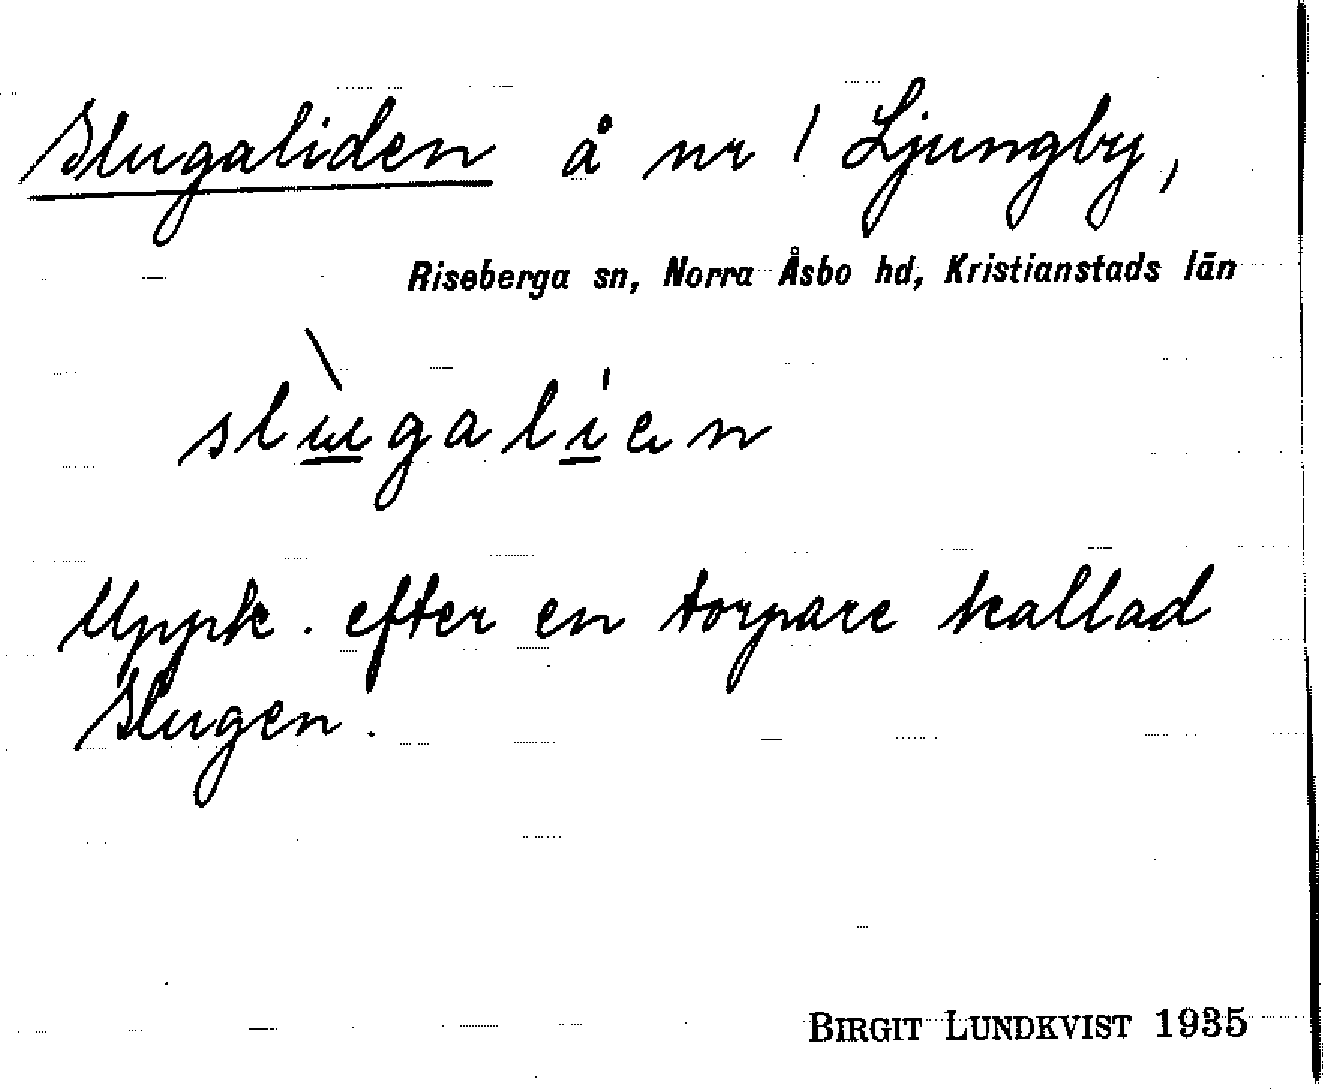 Slugaliden å nr 1 Ljungby,
Riseberga sn, Norra Åsbo hd, Kristianstads län
slɯ̀galien
Uppk. efter en torpare kallad
Slugen.
BIRGIT LUNDKVIST 1935